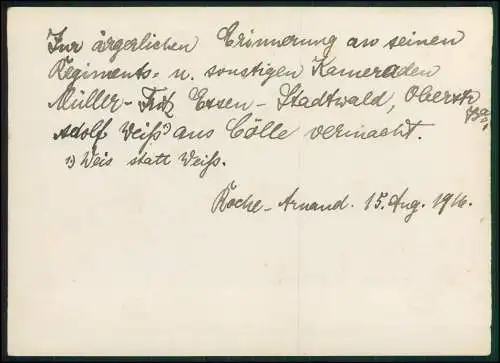 Zur ärgerlichen Erinnerung an seinen
Regiments- u. sonstigen Kameraden
Müller-Fritz Essen-Stadtwald, Oberstr
Adolf Weiß¹) aus Cölle vermacht.
¹) Weis statt Weiß.
Roche-Arnand. 15. Aug. 1916.